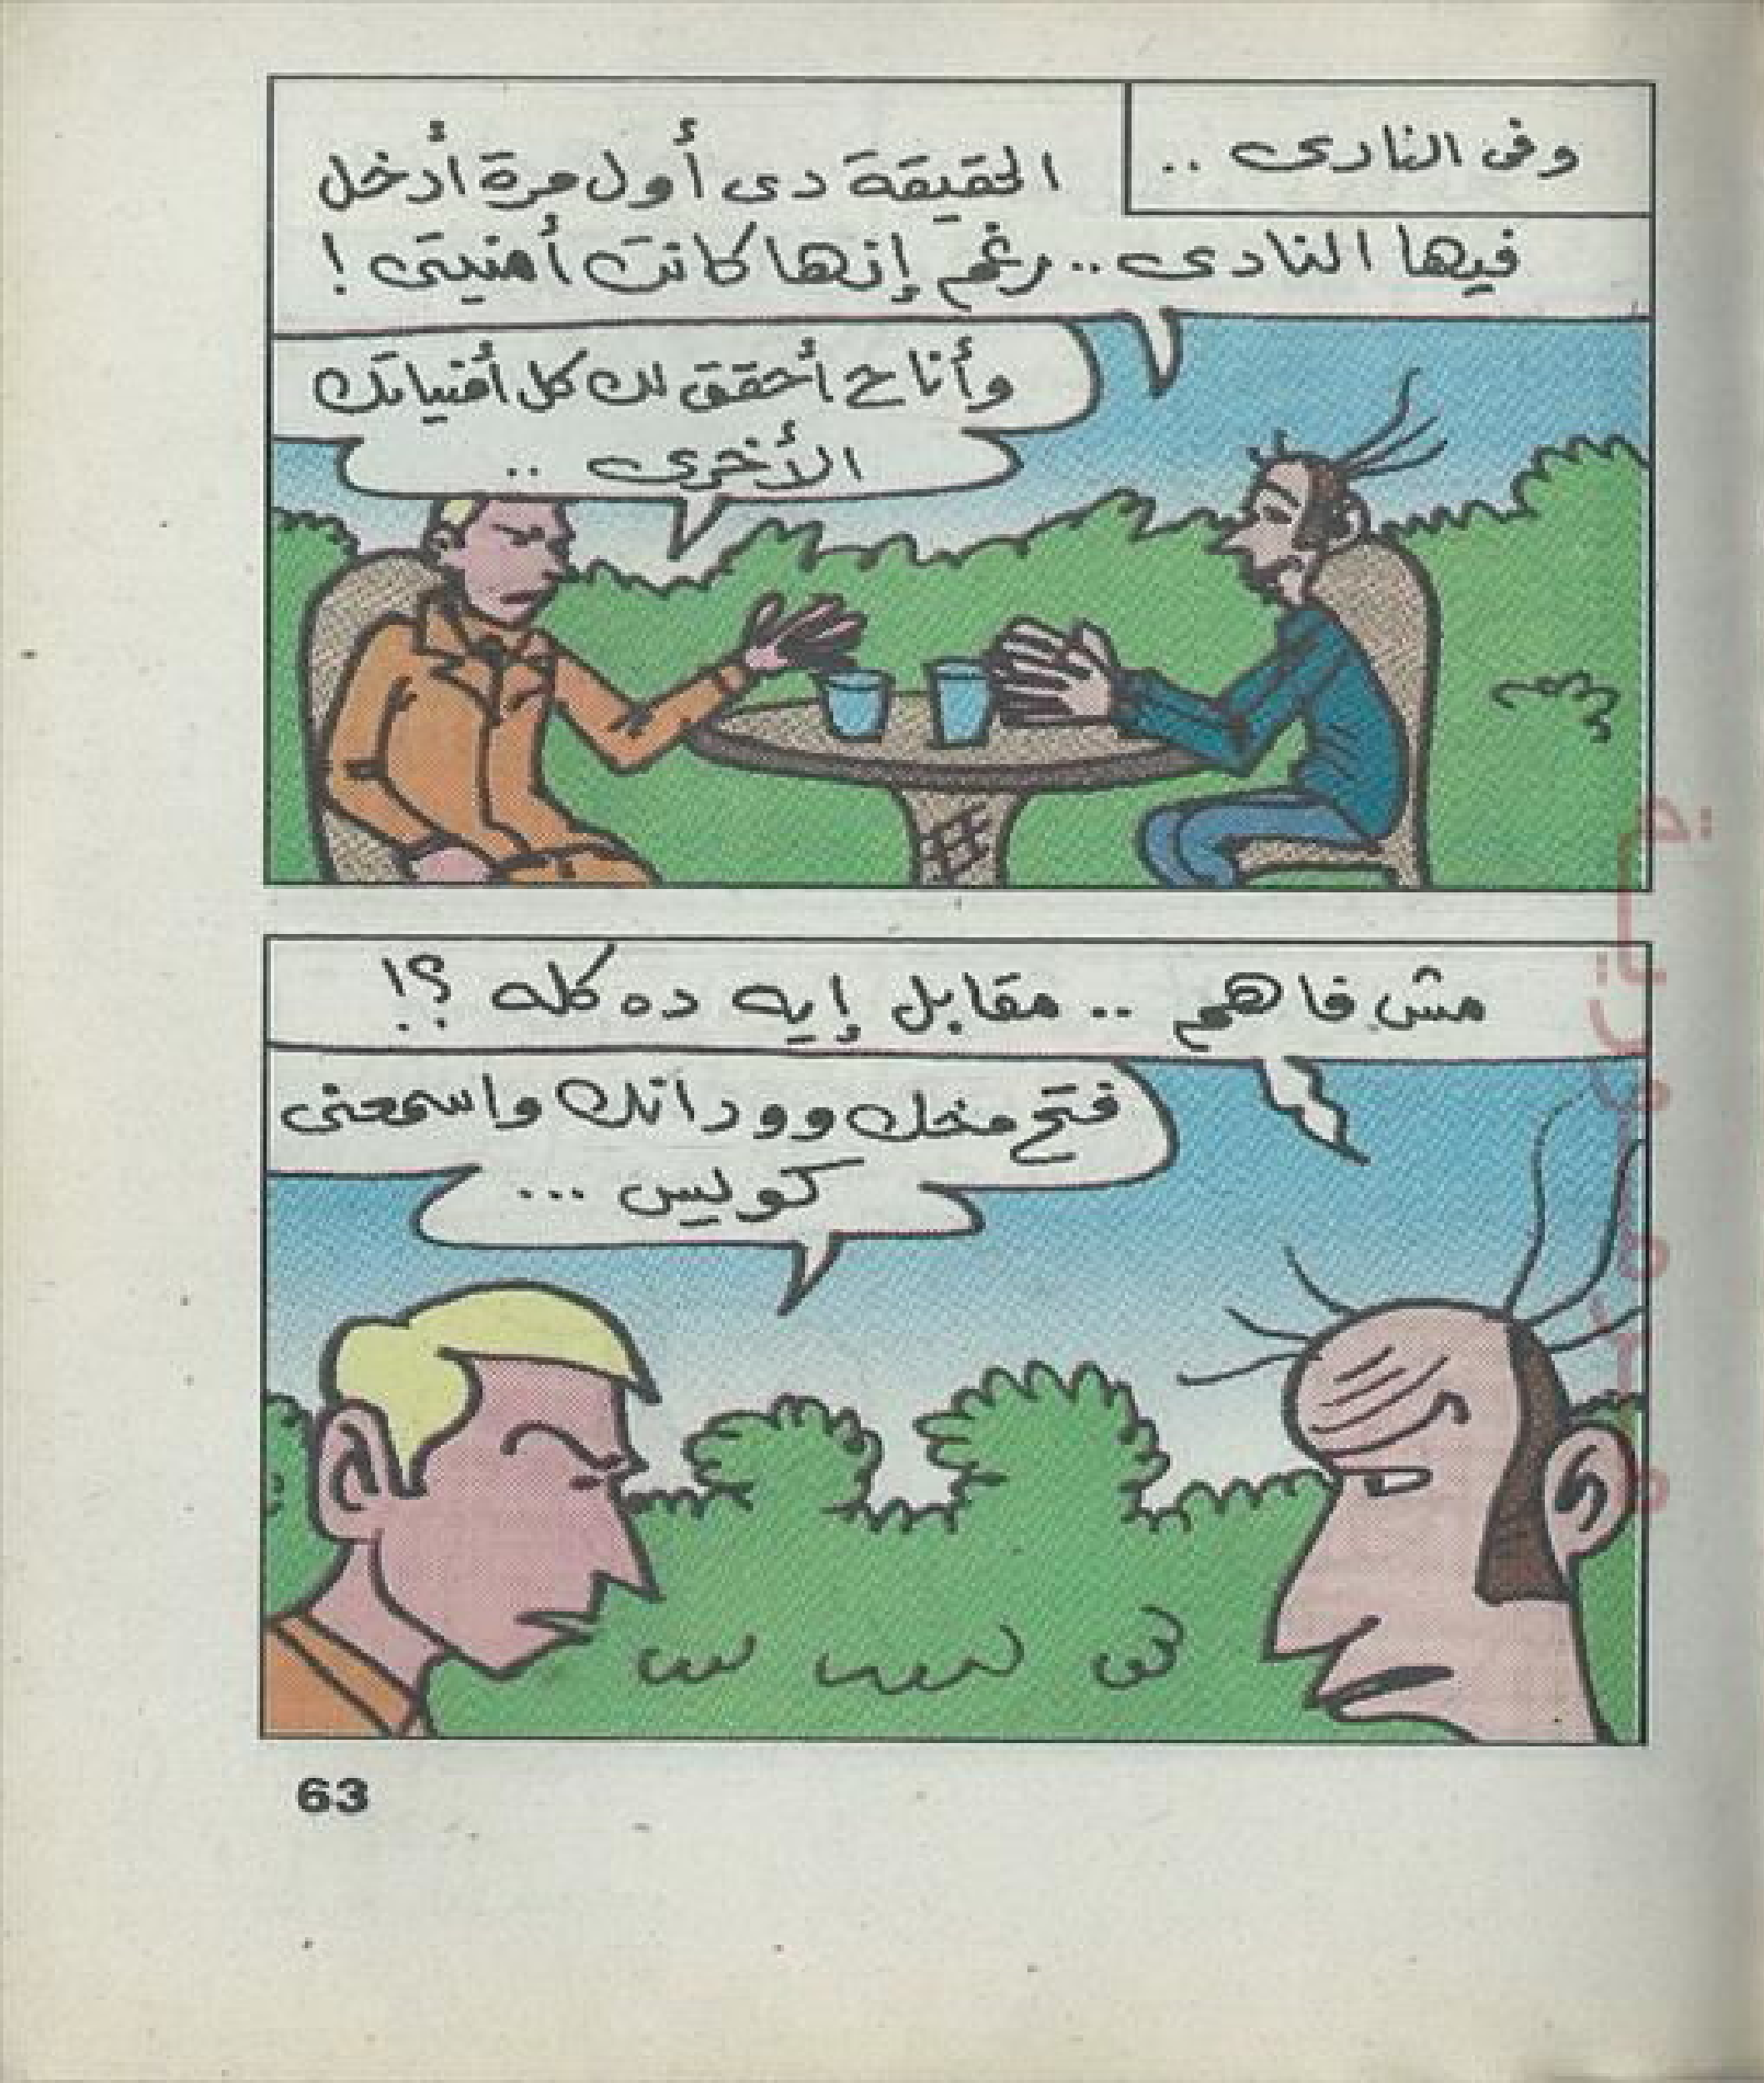 وفى النادى ..
الحقيقة دى أول مرة أدخل
فيها النادى .. رغم إنها كانت أمنيتى !
وأنا ح أحقق لك كل أمنياتك
الأخرى ..
مش فاهم .. مقابل إيه ده كله ؟!
فتح مخك وودانك واسمعنى
كويس ...
63